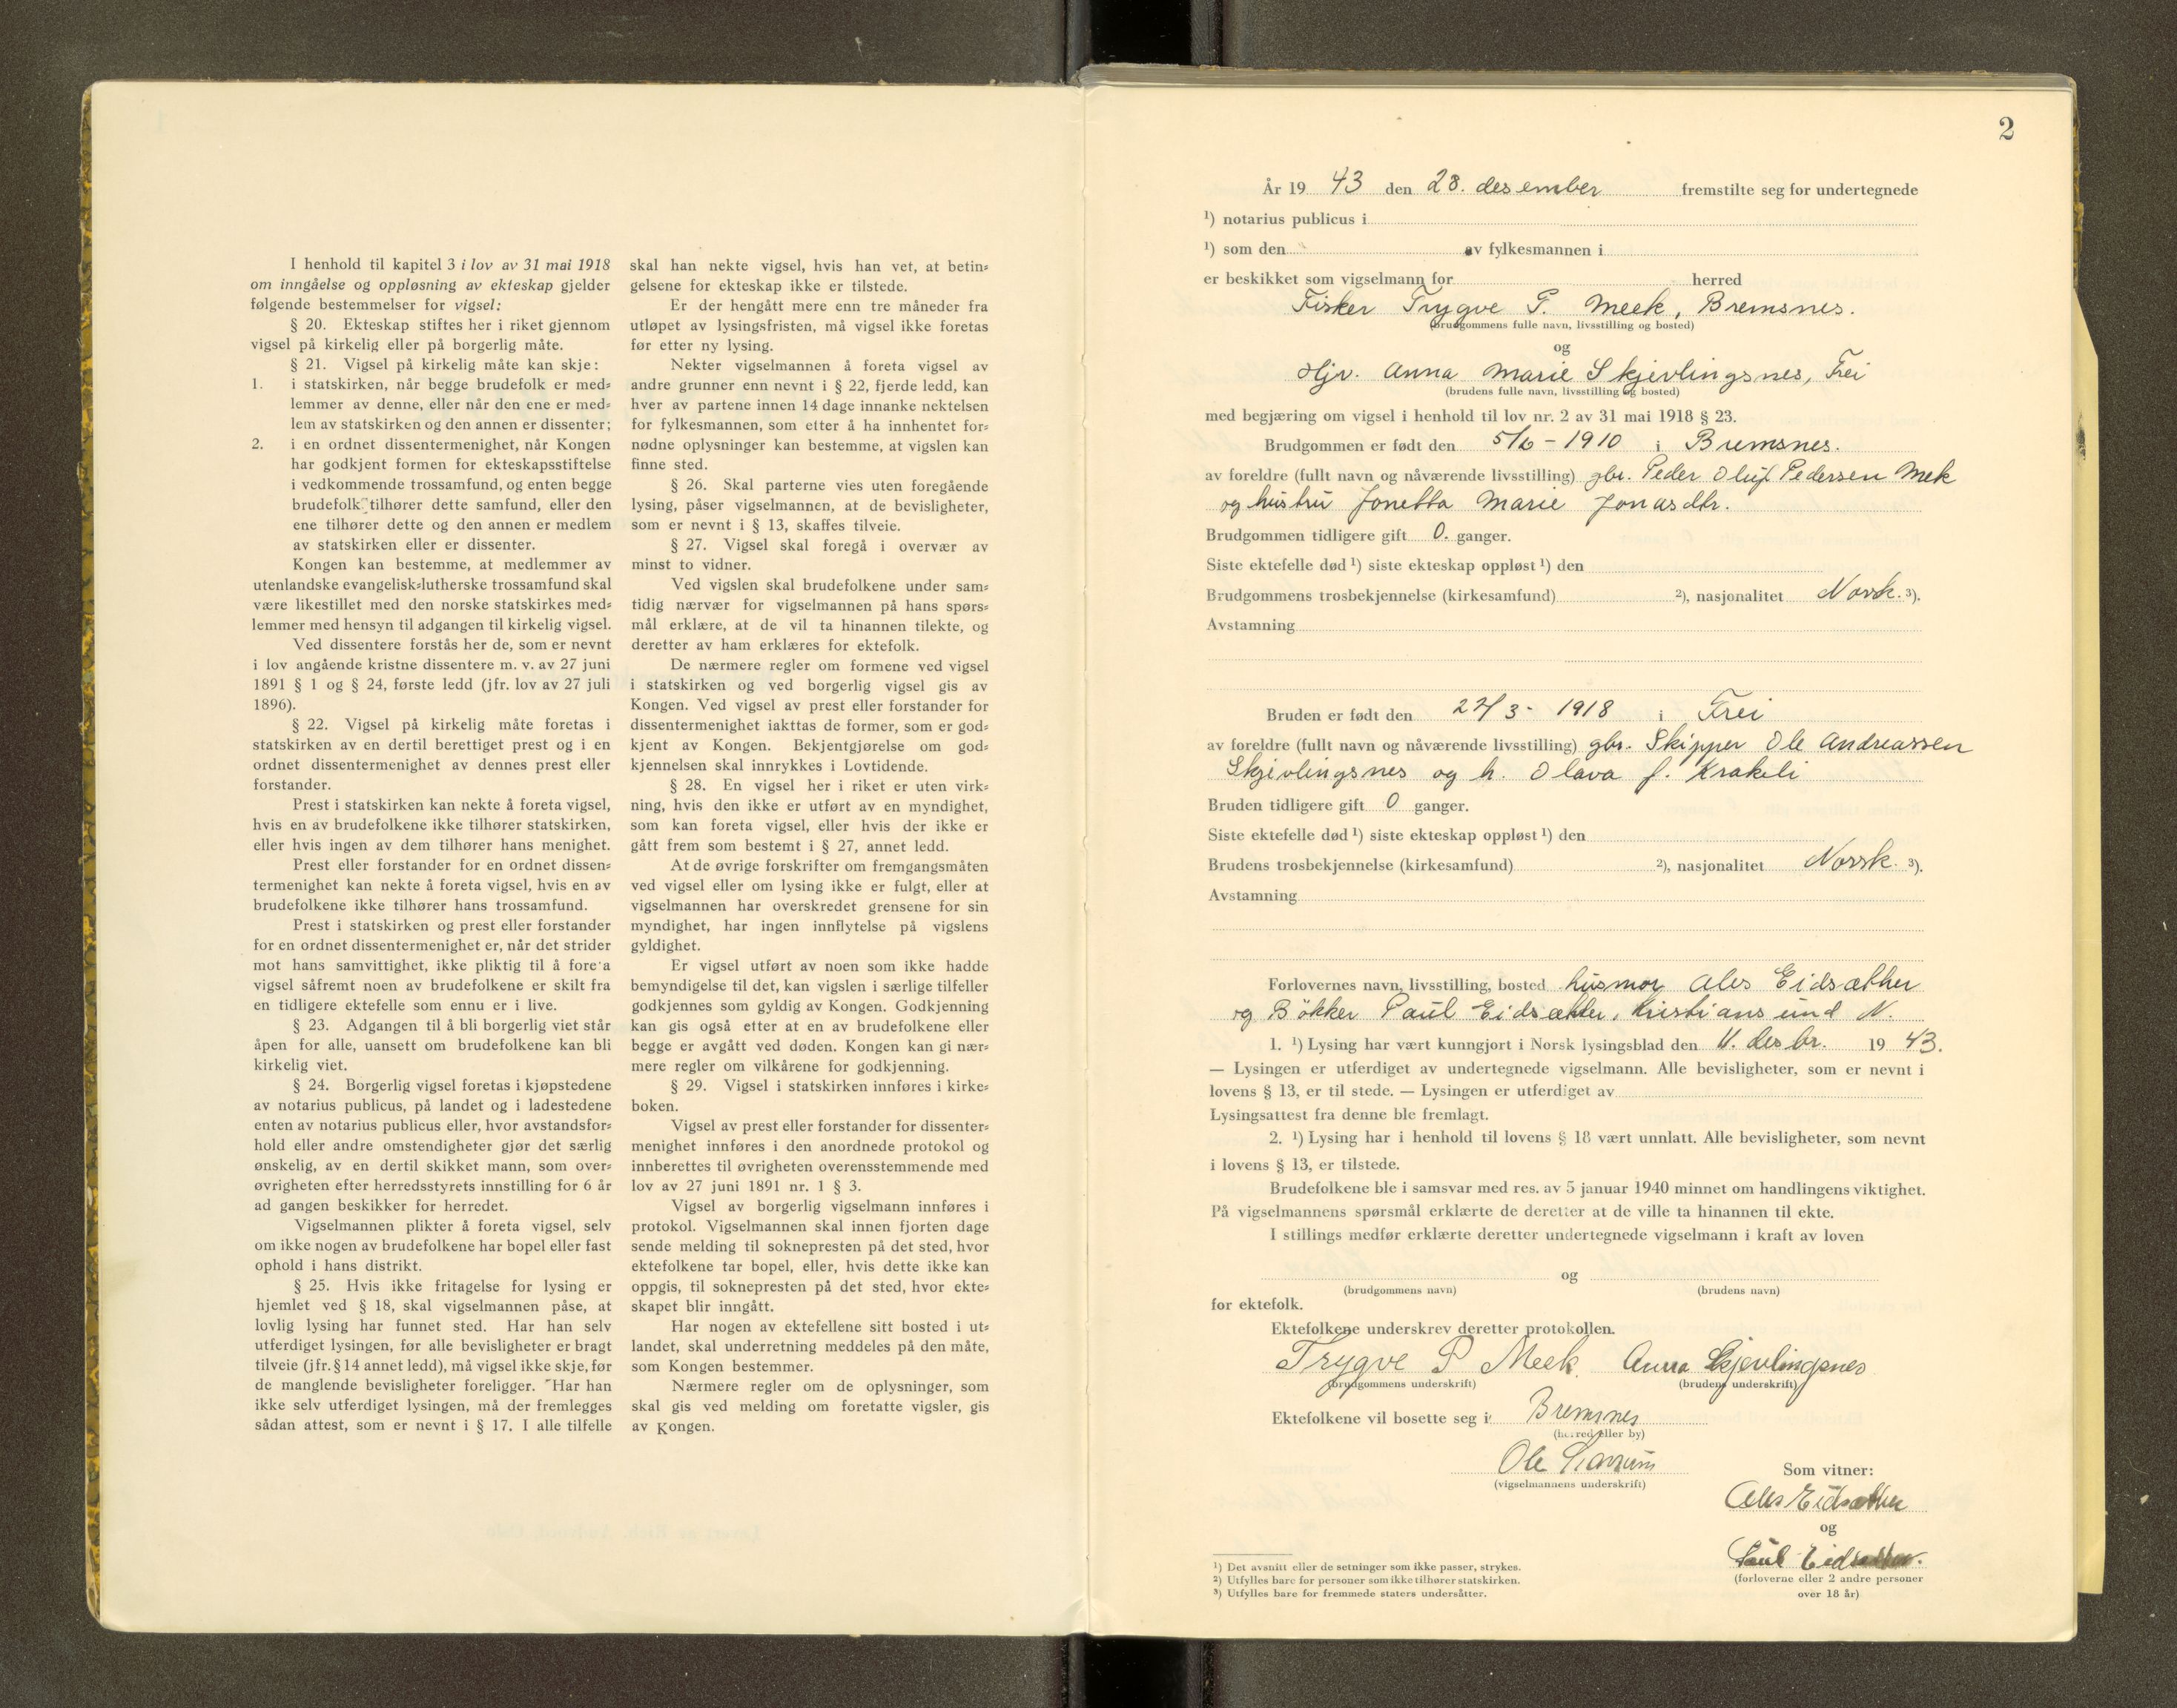 I henhold til kapitel 3 i lov av 31 mai 1918
om inngåelse og oppløsning av ekteskap gjelder
følgende bestemmelser for vigsel:
§ 20. Ekteskap stiftes her i riket gjennom
vigsel på kirkelig eller på borgerlig måte.
§ 21. Vigsel på kirkelig måte kan skje:
1. i statskirken, når begge brudefolk er med=
lemmer av denne, eller når den ene er med=
lem av statskirken og den annen er dissenter;
2. i en ordnet dissentermenighet, når Kongen
har godkjent formen for ekteskapsstiftelse
i vedkommende trossamfund, og enten begge
brudefolk tilhører dette samfund, eller den
ene tilhører dette og den annen er medlem
av statskirken eller er dissenter.
Kongen kan bestemme, at medlemmer av
utenlandske evangelisk=lutherske trossamfund skal
være likestillet med den norske statskirkes med=
lemmer med hensyn til adgangen til kirkelig vigsel.
Ved dissentere forstås her de, som er nevnt
i lov angående kristne dissentere m. v. av 27 juni
1891 § 1 og § 24, første ledd (jfr. lov av 27 juli
1896).
§ 22. Vigsel på kirkelig måte foretas i
statskirken av en dertil berettiget prest og i en
ordnet dissentermenighet av dennes prest eller
forstander.
Prest i statskirken kan nekte å foreta vigsel,
hvis en av brudefolkene ikke tilhører statskirken,
eller hvis ingen av dem tilhører hans menighet.
Prest eller forstander for en ordnet dissen=
termenighet kan nekte å foreta vigsel, hvis en av
brudefolkene ikke tilhører hans trossamfund.
Prest i statskirken og prest eller forstander
for en ordnet dissentermenighet er, når det strider
mot hans samvittighet, ikke pliktig til å fore'a
vigsel såfremt noen av brudefolkene er skilt fra
en tidligere ektefelle som ennu er i live.
§ 23. Adgangen til å bli borgerlig viet står
åpen for alle, uansett om brudefolkene kan bli
kirkelig viet.
§ 24. Borgerlig vigsel foretas i kjøpstedene
av notarius publicus, på landet og i ladestedene
enten av notarius publicus eller, hvor avstandsfor=
hold eller andre omstendigheter gjør det særlig
ønskelig, av en dertil skikket mann, som over=
øvrigheten efter herredsstyrets innstilling for 6 år
ad gangen beskikker for herredet.
Vigselmannen plikter å foreta vigsel, selv
om ikke nogen av brudefolkene har bopel eller fast
ophold i hans distrikt.
§ 25. Hvis ikke fritagelse for lysing er
hjemlet ved § 18, skal vigselmannen påse, at
lovlig lysing har funnet sted. Har han selv
utferdiget lysingen, før alle bevisligheter er bragt
tilveie (jfr. § 14 annet ledd), må vigsel ikke skje, før
de manglende bevisligheter foreligger. Har han
ikke selv utferdiget lysingen, må der fremlegges
sådan attest, som er nevnt i § 17. I alle tilfelle
skal han nekte vigsel, hvis han vet, at betin=
gelsene for ekteskap ikke er tilstede.
Er der hengått mere enn tre måneder fra
utløpet av lysingsfristen, må vigsel ikke foretas
før etter ny lysing.
Nekter vigselmannen å foreta vigsel av
andre grunner enn nevnt i § 22, fjerde ledd, kan
hver av partene innen 14 dage innanke nektelsen
for fylkesmannen, som etter å ha innhentet for=
nødne oplysninger kan bestemme, at vigslen kan
finne sted.
§ 26. Skal parterne vies uten foregående
lysing, påser vigselmannen, at de bevisligheter,
som er nevnt i § 13, skaffes tilveie.
§ 27. Vigsel skal foregå i overvær av
minst to vidner.
Ved vigslen skal brudefolkene under sam=
tidig nærvær for vigselmannen på hans spørs=
mål erklære, at de vil ta hinannen tilekte, og
deretter av ham erklæres for ektefolk.
De nærmere regler om formene ved vigsel
i statskirken og ved borgerlig vigsel gis av
Kongen. Ved vigsel av prest eller forstander for
dissentermenighet iakttas de former, som er god=
kjent av Kongen. Bekjentgjørelse om god=
kjennelsen skal innrykkes i Lovtidende.
§ 28. En vigsel her i riket er uten virk=
ning, hvis den ikke er utført av en myndighet,
som kan foreta vigsel, eller hvis der ikke er
gått frem som bestemt i § 27, annet ledd.
At de øvrige forskrifter om fremgangsmåten
ved vigsel eller om lysing ikke er fulgt, eller at
vigselmannen har overskredet grensene for sin
myndighet, har ingen innflytelse på vigslens
gyldighet.
Er vigsel utført av noen som ikke hadde
bemyndigelse til det, kan vigslen i særlige tilfeller
godkjennes som gyldig av Kongen. Godkjenning
kan gis også etter at en av brudefolkene eller
begge er avgått ved døden. Kongen kan gi nær=
mere regler om vilkårene for godkjenning.
§ 29. Vigsel i statskirken innføres i kirke=
boken.
Vigsel av prest eller forstander for dissenter=
menighet innføres i den anordnede protokol og
innberettes til øvrigheten overensstemmende med
lov av 27 juni 1891 nr. 1 § 3.
Vigsel av borgerlig vigselmann innføres i
protokol. Vigselmannen skal innen fjorten dage
sende melding til soknepresten på det sted, hvor
ektefolkene tar bopel, eller, hvis dette ikke kan
oppgis, til soknepresten på det sted, hvor ekte=
skapet blir inngått.
Har nogen av ektefellene sitt bosted i ut=
landet, skal underretning meddeles på den måte,
som Kongen bestemmer.
Nærmere regler om de oplysninger, som
skal gis ved melding om foretatte vigsler, gis
av Kongen.
2
År 1943 den 28. desember fremstilte seg for undertegnede
¹) notarius publicus i
¹) som den av fylkesmannen i
er beskikket som vigselmann for herred
Fisker Trygve P. Meek, Bremsnes.
(brudgommens fulle navn, livsstilling og bosted)
og
Hjv. Anna Marie Skjevlingsnes, Frei
(brudens fulle navn, livsstilling og bosted)
med begjæring om vigsel i henhold til lov nr. 2 av 31 mai 1918 § 23.
Brudgommen er født den 5/6 - 1910 i Bremsnes.
av foreldre (fullt navn og nåværende livsstilling) gbr. Peder Oluf Pedersen Mek
og hustru Jonetta Marie Jonasdtr.
Brudgommen tidligere gift 0. ganger.
Siste ektefelle død ¹) siste ekteskap oppløst ¹) den
Brudgommens trosbekjennelse (kirkesamfund) ²), nasjonalitet Norsk. ³).
Avstamning
Bruden er født den 22/3 - 1918 i Frei
av foreldre (fullt navn og nåværende livsstilling) gbr. Skipper Ole Andreassen
Skjevlingsnes og h. Olava f. Krakeli
Bruden tidligere gift 0 ganger.
Siste ektefelle død ¹) siste ekteskap oppløst ¹) den
Brudens trosbekjennelse (kirkesamfund) ²), nasjonalitet Norsk. ³).
Avstamning
Forlovernes navn, livsstilling, bosted husmor Ales Eidsæther
og Bökker Paul Eidsæther, Kristiansund N.
1. ¹) Lysing har vært kunngjort i Norsk lysingsblad den 11. desbr. 1943.
— Lysingen er utferdiget av undertegnede vigselmann. Alle bevisligheter, som er nevnt i
lovens § 13, er til stede. — Lysingen er utferdiget av
Lysingsattest fra denne ble fremlagt.
2. ¹) Lysing har i henhold til lovens § 18 vært unnlatt. Alle bevisligheter, som nevnt
i lovens § 13, er tilstede.
Brudefolkene ble i samsvar med res. av 5 januar 1940 minnet om handlingens viktighet.
På vigselmannens spørsmål erklærte de deretter at de ville ta hinannen til ekte.
I stillings medfør erklærte deretter undertegnede vigselmann i kraft av loven
og
(brudgommens navn) (brudens navn)
for ektefolk.
Ektefolkene underskrev deretter protokollen.
Trygve P Meek. Anna Skjevlingsnes
(brudgommens underskrift) (brudens underskrift)
Ektefolkene vil bosette seg i Bremsnes
(herred eller by)
Ole
(vigselmannens underskrift)
Som vitner:
Ales Eidsæther
og
Paul Eidsæther.
(forloverne eller 2 andre personer
over 18 år)
¹) Det avsnitt eller de setninger som ikke passer, strykes.
²) Utfylles bare for personer som ikke tilhører statskirken.
³) Utfylles bare for fremmede staters undersåtter.